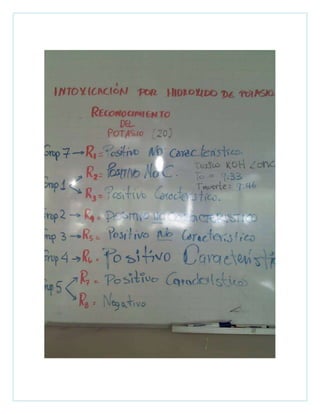 INTOXICACIÓN POR HIDROXIDO DE POTASIO
RECONOCIMIENTO
DEL
POTASIO (20)
Grup 7 → R1 = Positivo No Característico
Grup 1 R2 = Positivo No C.
R3 = Positivo Característico.
KOH
To = 7:33
Tmuerte = 7:46
Grup 2 → R4 = Positivo No Característico
Grup 3 → R5 = Positivo No Característico
Grup 4 → R6 = Positivo Característico
Grup 5 R7 = Positivo Característico
R8 = Negativo